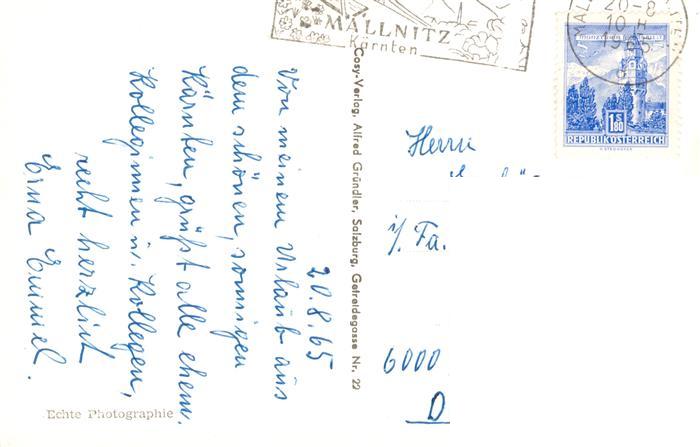 20.8.65
Von meinem Urlaub aus
dem schönen, sonnigen
Kärnten, grüßt alle ehem.
Kolleginnen u. Kollegen,
recht herzlich
Erna
Echte Photographie
Cosy-Verlag, Alfred Gründler, Salzburg, Getreidegasse Nr. 22
MALLNITZ
Kärnten
20-8
10 H
1965
1.80
REPUBLIK ÖSTERREICH
Herrn
i/Fa.
6000
D